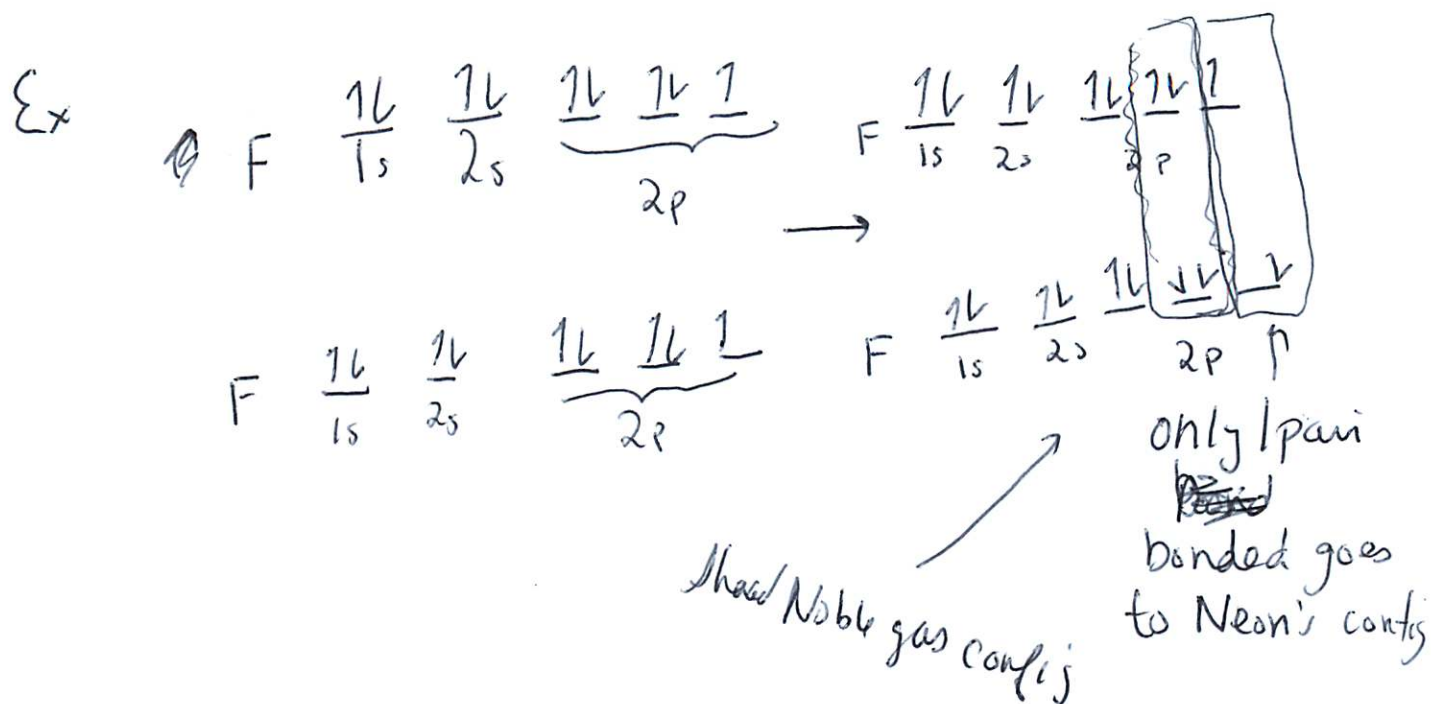 Ex
F 1s 2s 2p
F 1s 2s 2p
F 1s 2s 2p
F 1s 2s 2p
only 1 pair
bonded goes
to Neon's config
Noble gas config